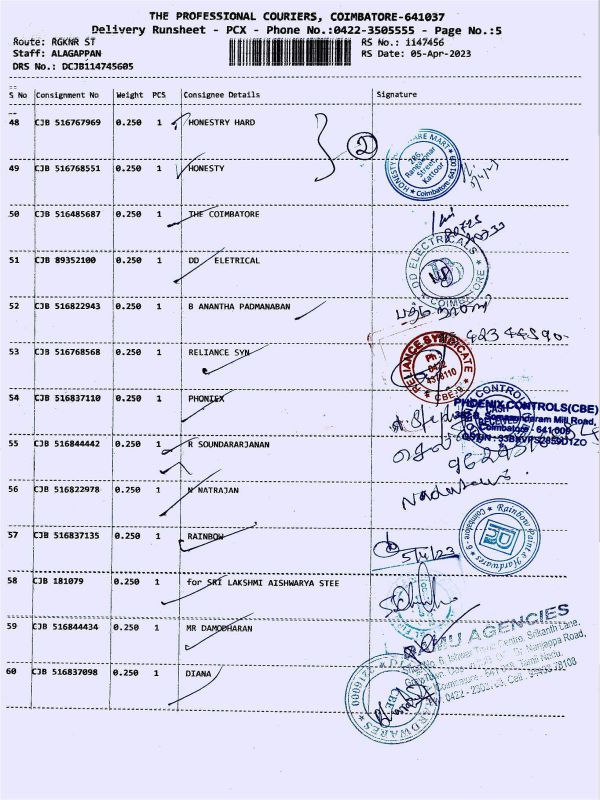 THE PROFESSIONAL COURIERS, COIMBATORE-641037
Delivery Runsheet - PCX - Phone No.:0422-3505555 - Page No.:5
Route: RGKNR ST RS No.: 1147456
Staff: ALAGAPPAN RS Date: 05-Apr-2023
DRS No.: DCJB114745605
S No Consignment No Weight PCS Consignee Details Signature
48 CJB 516767969 0.250 1 HONESTRY HARD
2
49 CJB 516768551 0.250 1 HONESTY
286, Rangakonar Street, Kattoor
Coimbatore-641009
50 CJB 516485687 0.250 1 THE COIMBATORE
51 CJB 89352100 0.250 1 DD ELETRICAL
DD ELECTRICALS
52 CJB 516822943 0.250 1 B ANANTHA PADMANABAN
53 CJB 516768568 0.250 1 RELIANCE SYN
RELIANCE SYNDICATE
Ph 0422
4376110
CBE-9
54 CJB 516837110 0.250 1 PHONIEX
PHOENIX CONTROLS(CBE)
Mill Road,
Coimbatore - 641 009
55 CJB 516844442 0.250 1 R SOUNDARARJANAN
56 CJB 516822978 0.250 1 N NATRAJAN
57 CJB 516837135 0.250 1 RAINBOW
Rainbow Paint & Hardwares
5/4/23
58 CJB 181079 0.250 1 for SRI LAKSHMI AISHWARYA STEE
59 CJB 516844434 0.250 1 MR DAMODHARAN
AGENCIES
60 CJB 516837098 0.250 1 DIANA